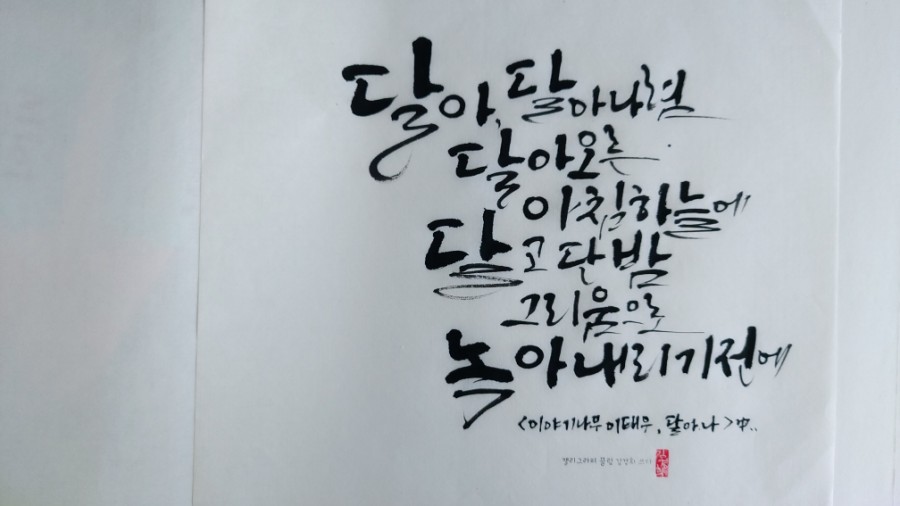 달아, 달아나렴
달아오른
아침하늘에
달고단밤
그리움으로
녹아내리기전에
<이야기나무이태무, 달아나>中..
캘리그라퍼